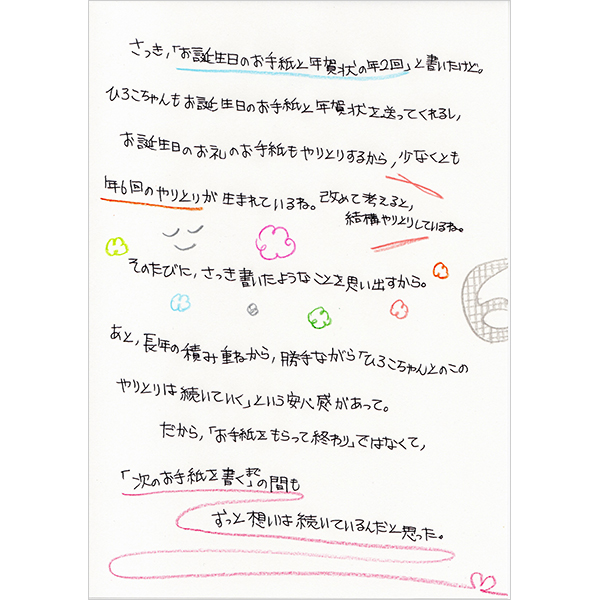 さっき,「お誕生日のお手紙と年賀状の年2回」と書いたけど。
ひろこちゃんもお誕生日のお手紙と年賀状を送ってくれるし,
お誕生日のお礼のお手紙もやりとりするから,少なくとも
年6回のやりとりが生まれているね。改めて考えると,
結構やりとりしているね。
そのたびに,さっき書いたようなことを思い出すから。
6
あと,長年の積み重ねから,勝手ながら「ひろこちゃんとのこの
やりとりは続いていく」という安心感があって。
だから,「お手紙をもらって終わり」ではなくて,
「次のお手紙を書くまで」の間も
ずっと想いは続いているんだと思った。